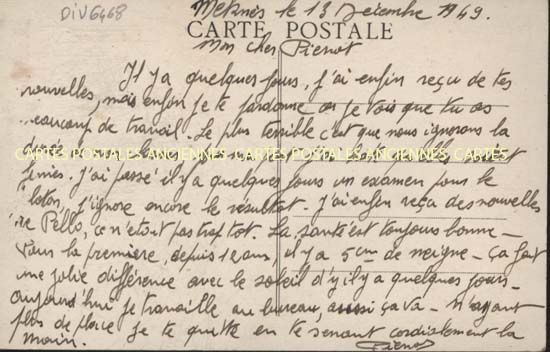 DIV6468
Meknès le 13 Décembre 1949.
CARTE POSTALE
Mon cher Pierrot
Il y a quelques jours, j'ai enfin reçu de tes
nouvelles, mais enfin je te pardonne car je vois que tu as
beaucoup de travail. Le plus terrible c'est que nous ignorons la
CARTES POSTALES ANCIENNES CARTES POSTALES ANCIENNES CARTES
finies. J'ai passé il y a quelques jours un examen pour le
j'ignore encore le résultat. J'ai enfin reçu des nouvelles
ce n'etait pas trop tot. La santé est toujours bonne -
Pour la première, depuis ans, il y a 5 cm de neige - ça fait
une jolie différence avec le soleil d'y il y a quelques jours -
aujourd'hui je travaille au bureau, aussi ça va - N'ayant
plus de place je te quitte en te serrant cordialement la
main. Pierrot